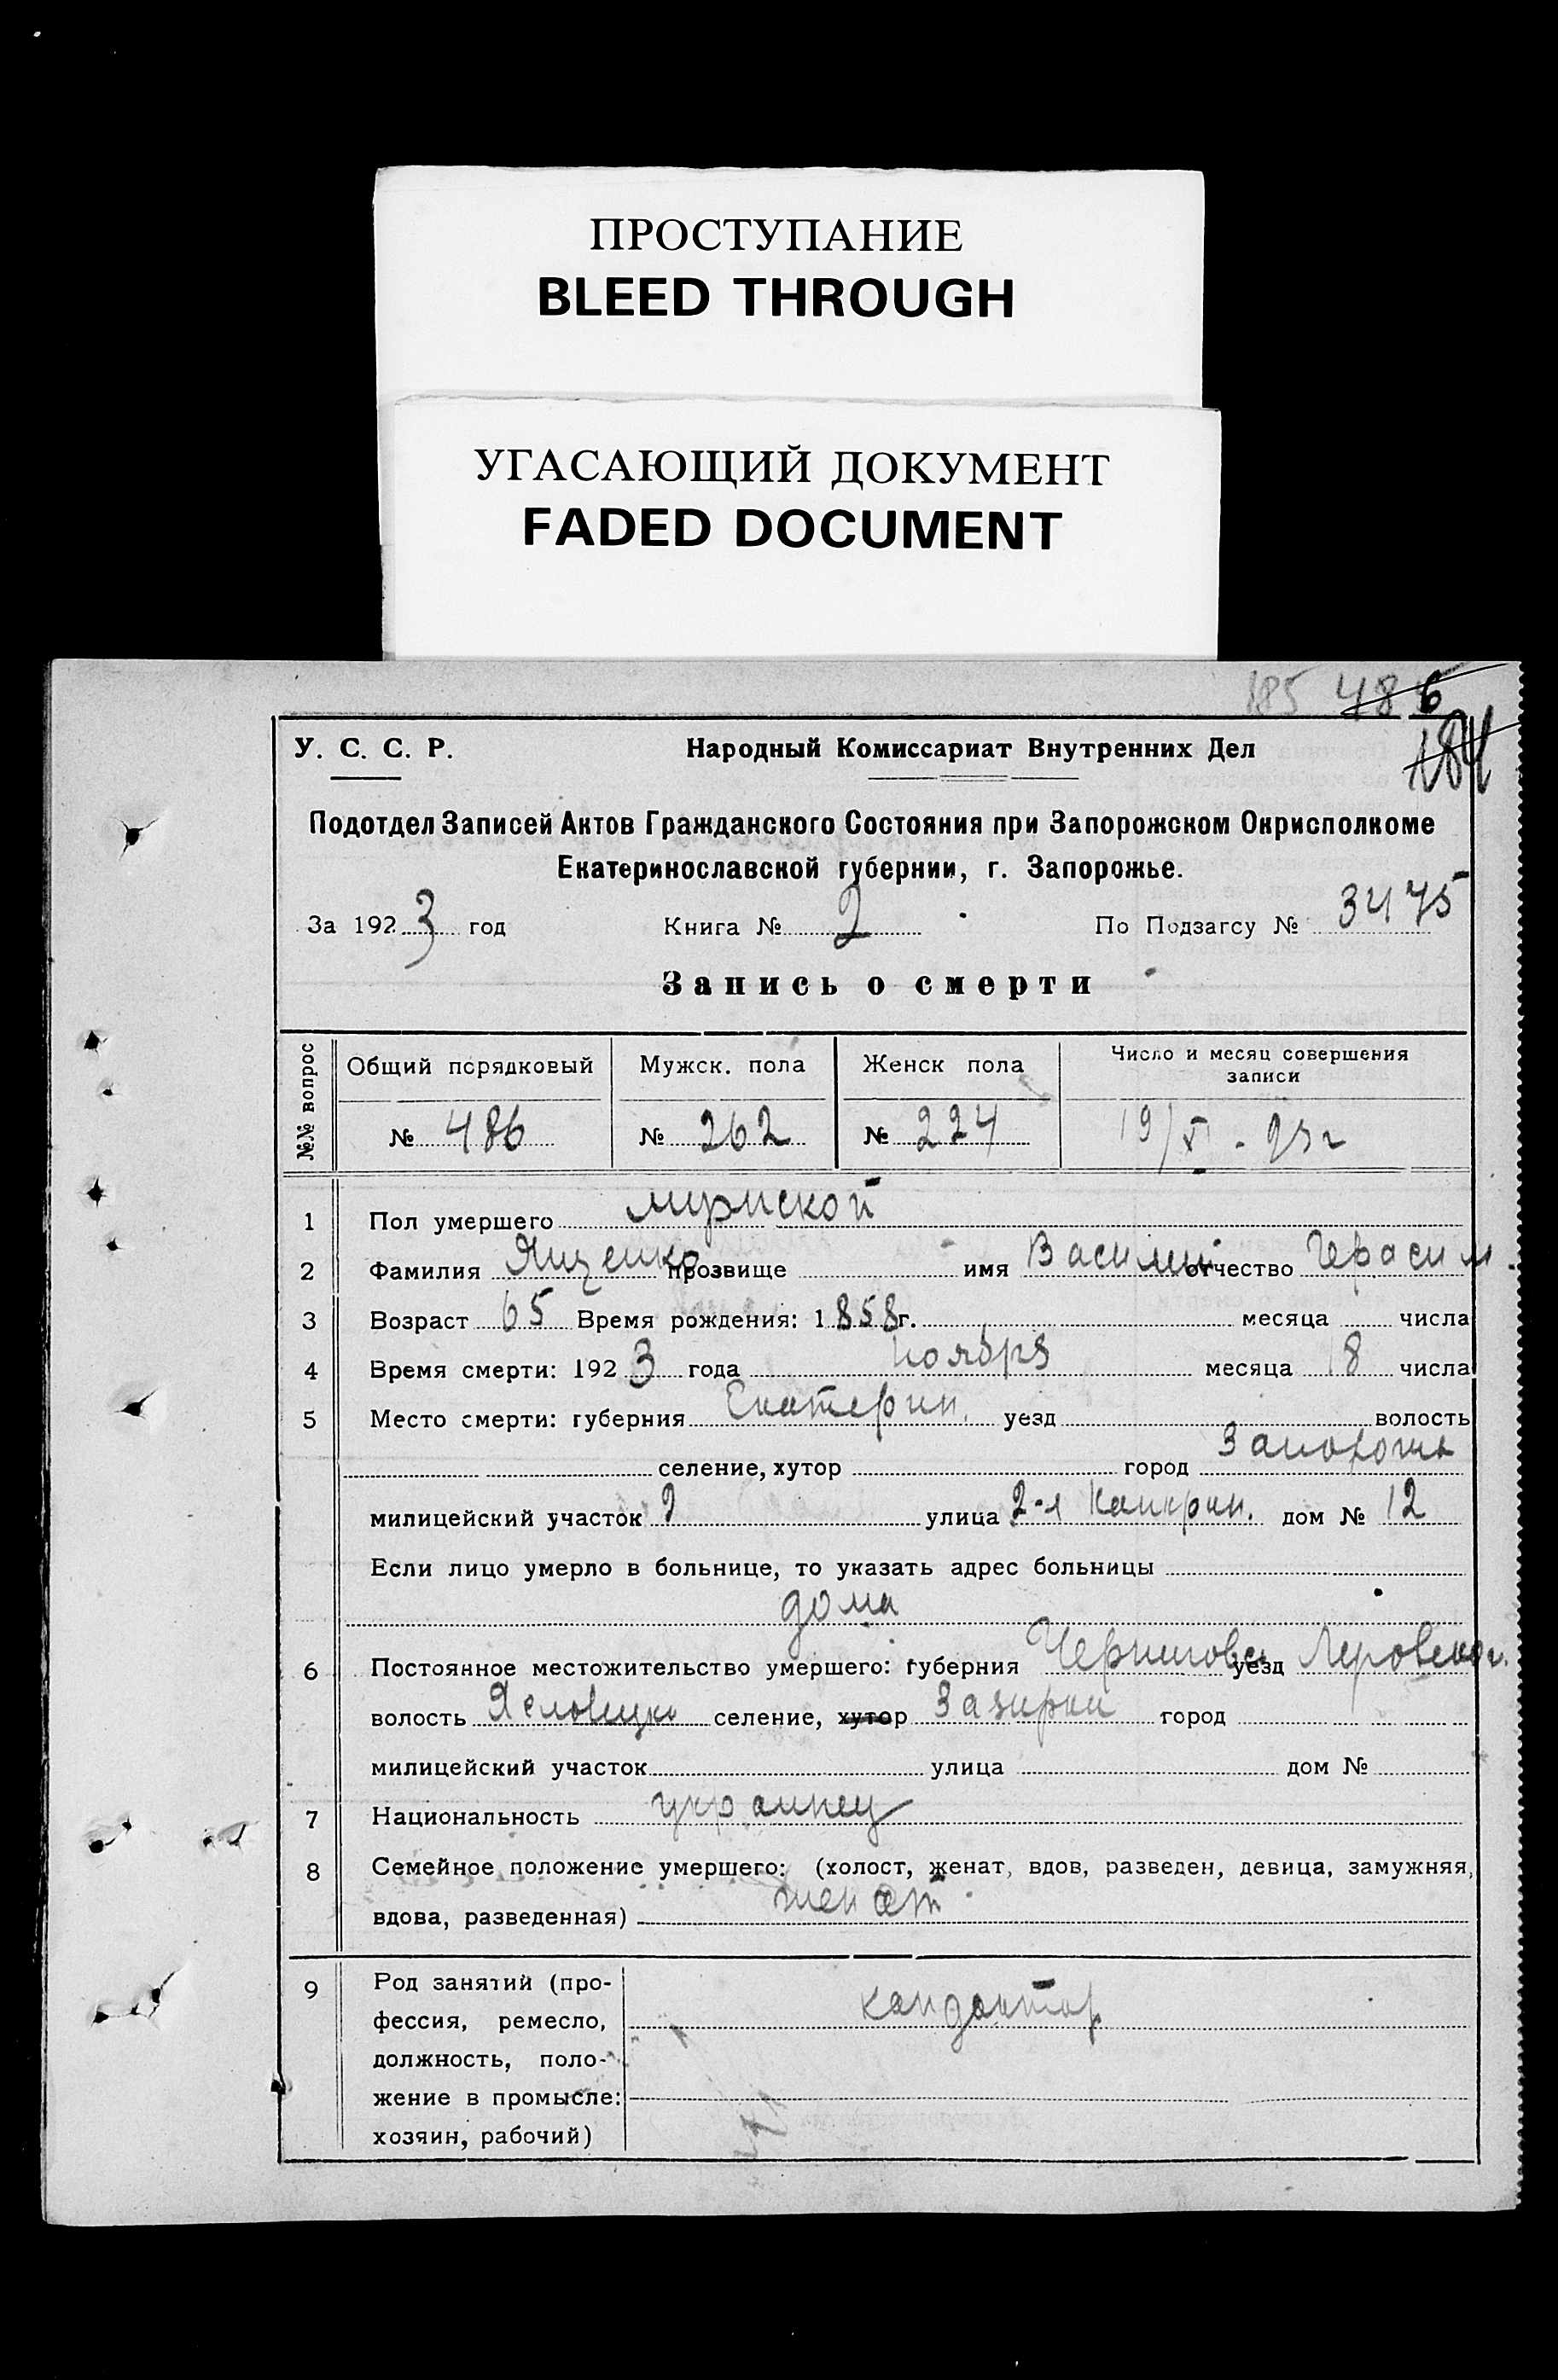 ПРОСТУПАНИЕ
BLEED THROUGH
УГАСАЮЩИЙ ДОКУМЕНТ
FADED DOCUMENT
185 48 6
184
У. С. С. Р. Народный Комиссариат Внутренних Дел
Подотдел Записей Актов Гражданского Состояния при Запорожском Окрисполкоме
Екатеринославской губернии, г. Запорожье.
За 1923 год Книга № 2 По Подзагсу № 3475
Запись о смерти
№№ вопрос Общий порядковый Мужск. пола Женск пола Число и месяц совершения записи
№ 486 № 262 № 224 19/XI - 23 г
1 Пол умершего мужской
2 Фамилия Яценко прозвище имя Василий отчество Герасим.
3 Возраст 65 Время рождения: 1858г. месяца числа
4 Время смерти: 1923 года ноября месяца 18 числа
5 Место смерти: губерния Екатерин. уезд волость
селение, хутор город Запорожье
милицейский участок 2 улица 2-я Канкрин. дом № 12
Если лицо умерло в больнице, то указать адрес больницы
дома
6 Постоянное местожительство умершего: губерния Чернигов уезд
волость селение, хутор Зазирки город
милицейский участок улица дом №
7 Национальность украинец
8 Семейное положение умершего: (холост, женат, вдов, разведен, девица, замужняя,
вдова, разведенная) женат
9 Род занятий (про-
фессия, ремесло, кандоктор
должность, поло-
жение в промысле:
хозяин, рабочий)